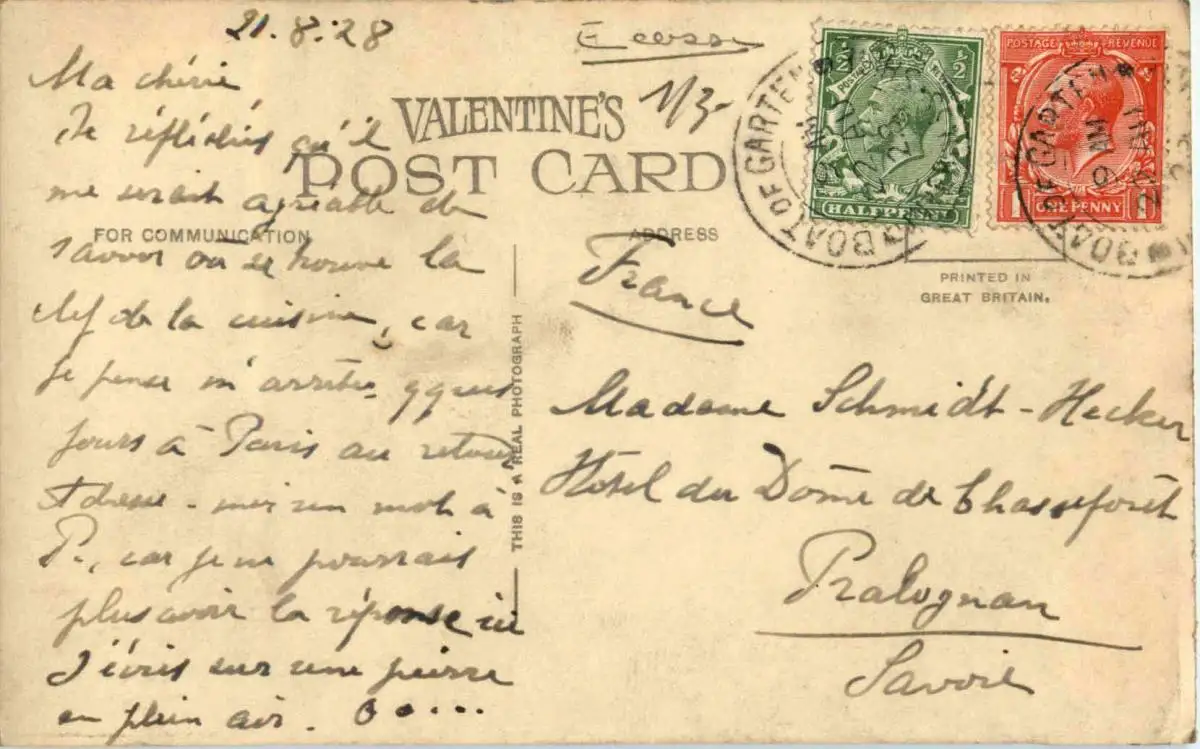 21.8.28
Ecosse
Ma chérie
Je réfléchis qu'il
me serait agréable de
savoir où se trouve la
clef de la cuisine, car
je pense m'arrêter qques
jours à Paris au retour
Adresse-moi un mot à
P., car je ne pourrais
plus avoir la réponse ici
J'écris sur une pierre
en plein air.
1/3-
VALENTINE'S
POST CARD
FOR COMMUNICATION
ADDRESS
THIS IS A REAL PHOTOGRAPH
PRINTED IN
GREAT BRITAIN.
France
Madame Schmidt-Hecker
Hôtel du Dôme de Chasseforêt
Pralognan
Savoie
POSTAGE
HALFPENNY
POSTAGE REVENUE
ONE PENNY
BOAT OF GARTEN
BOAT OF GARTEN